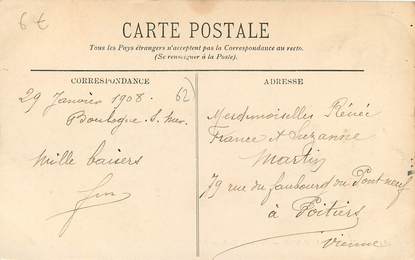 6 €
CARTE POSTALE
Tous les Pays étrangers n'acceptent pas la Correspondance au recto.
(Se renseigner à la Poste).
CORRESPONDANCE
29 Janvier 1908.
62
Boulogne S. Mer
Mille baisers
ADRESSE
Mesdmoiselles Rénée
France & Suzanne
Martin
79 rue du faubourg du Pont neuf
à Poitiers
Vienne